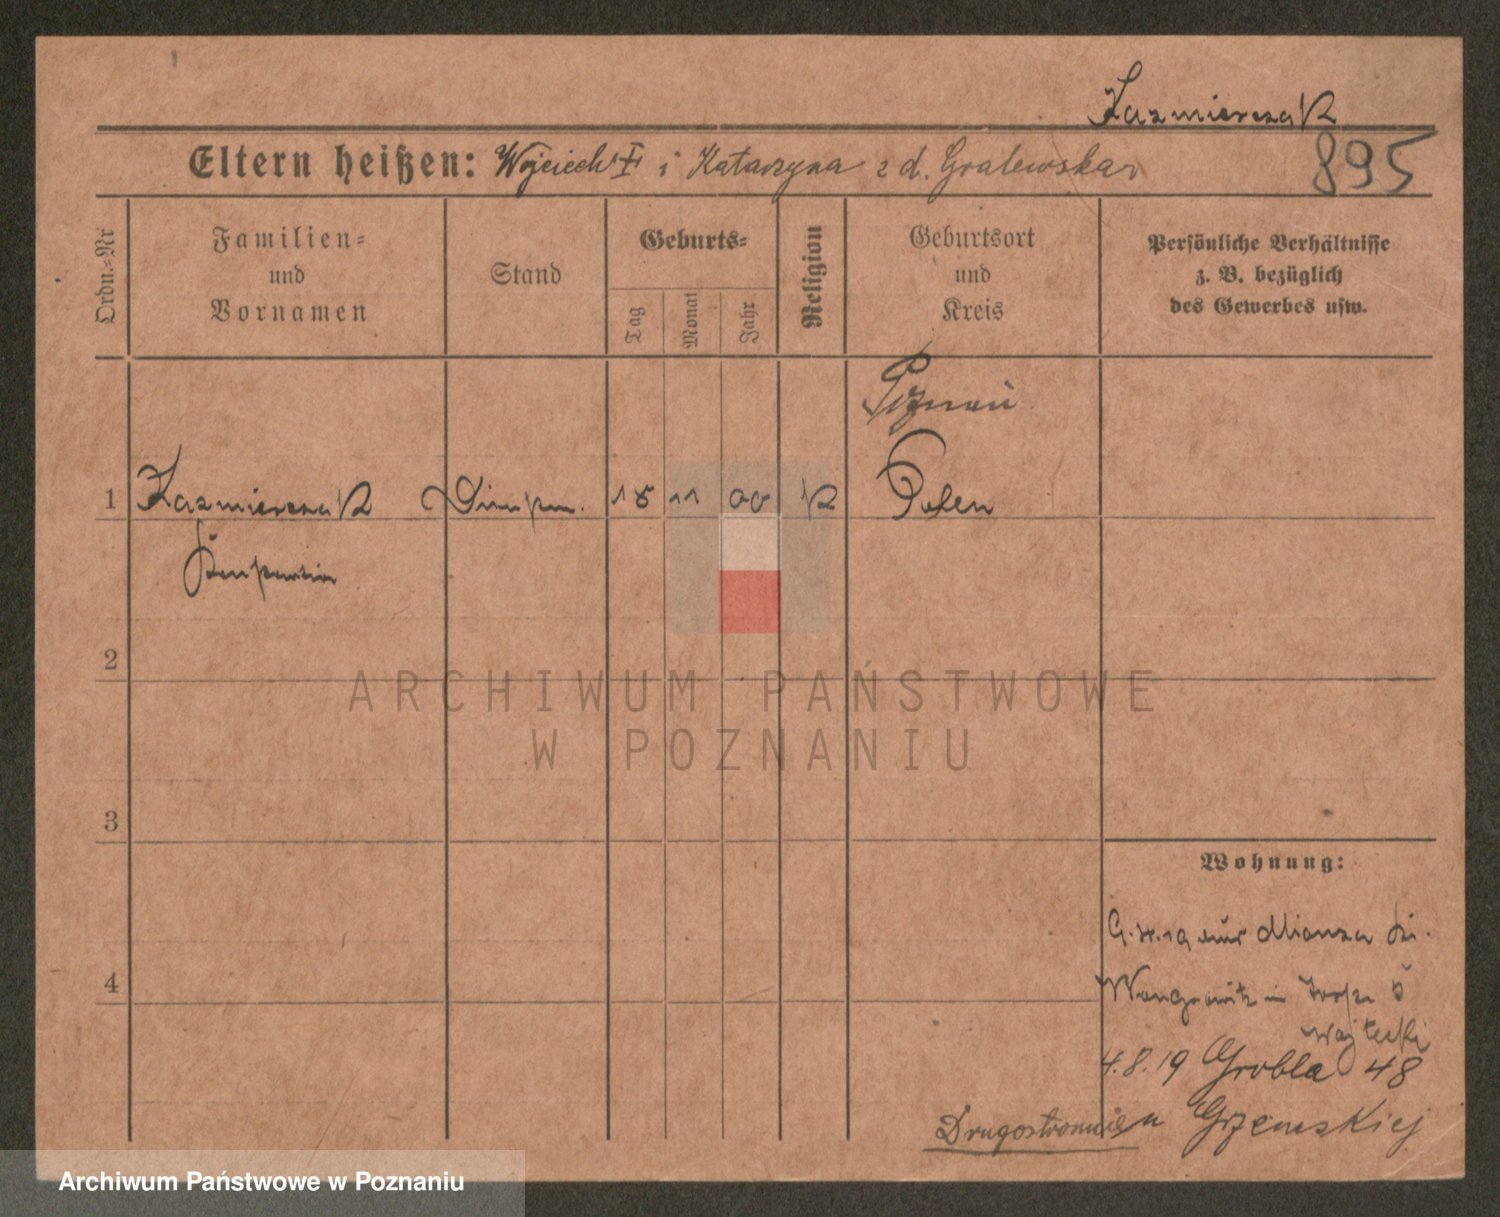 Kazmierczak
895
Eltern heißen: Wojciech i Katarzyna z d. Gralewska
Ordn.=Nr
Familien=
und
Vornamen
Stand
Geburts=
Tag
Monat
Jahr
Religion
Geburtsort
und
Kreis
Persönliche Verhältnisse
z. B. bezüglich
des Gewerbes usw.
Poznań
1 Kazmierczak 11 00 K Posen
2
3
4
Wohnung:
4.8.19 Grobla 48
Drugostronnie u Grzemskiej
ARCHIWUM PAŃSTWOWE
W POZNANIU
Archiwum Państwowe w Poznaniu